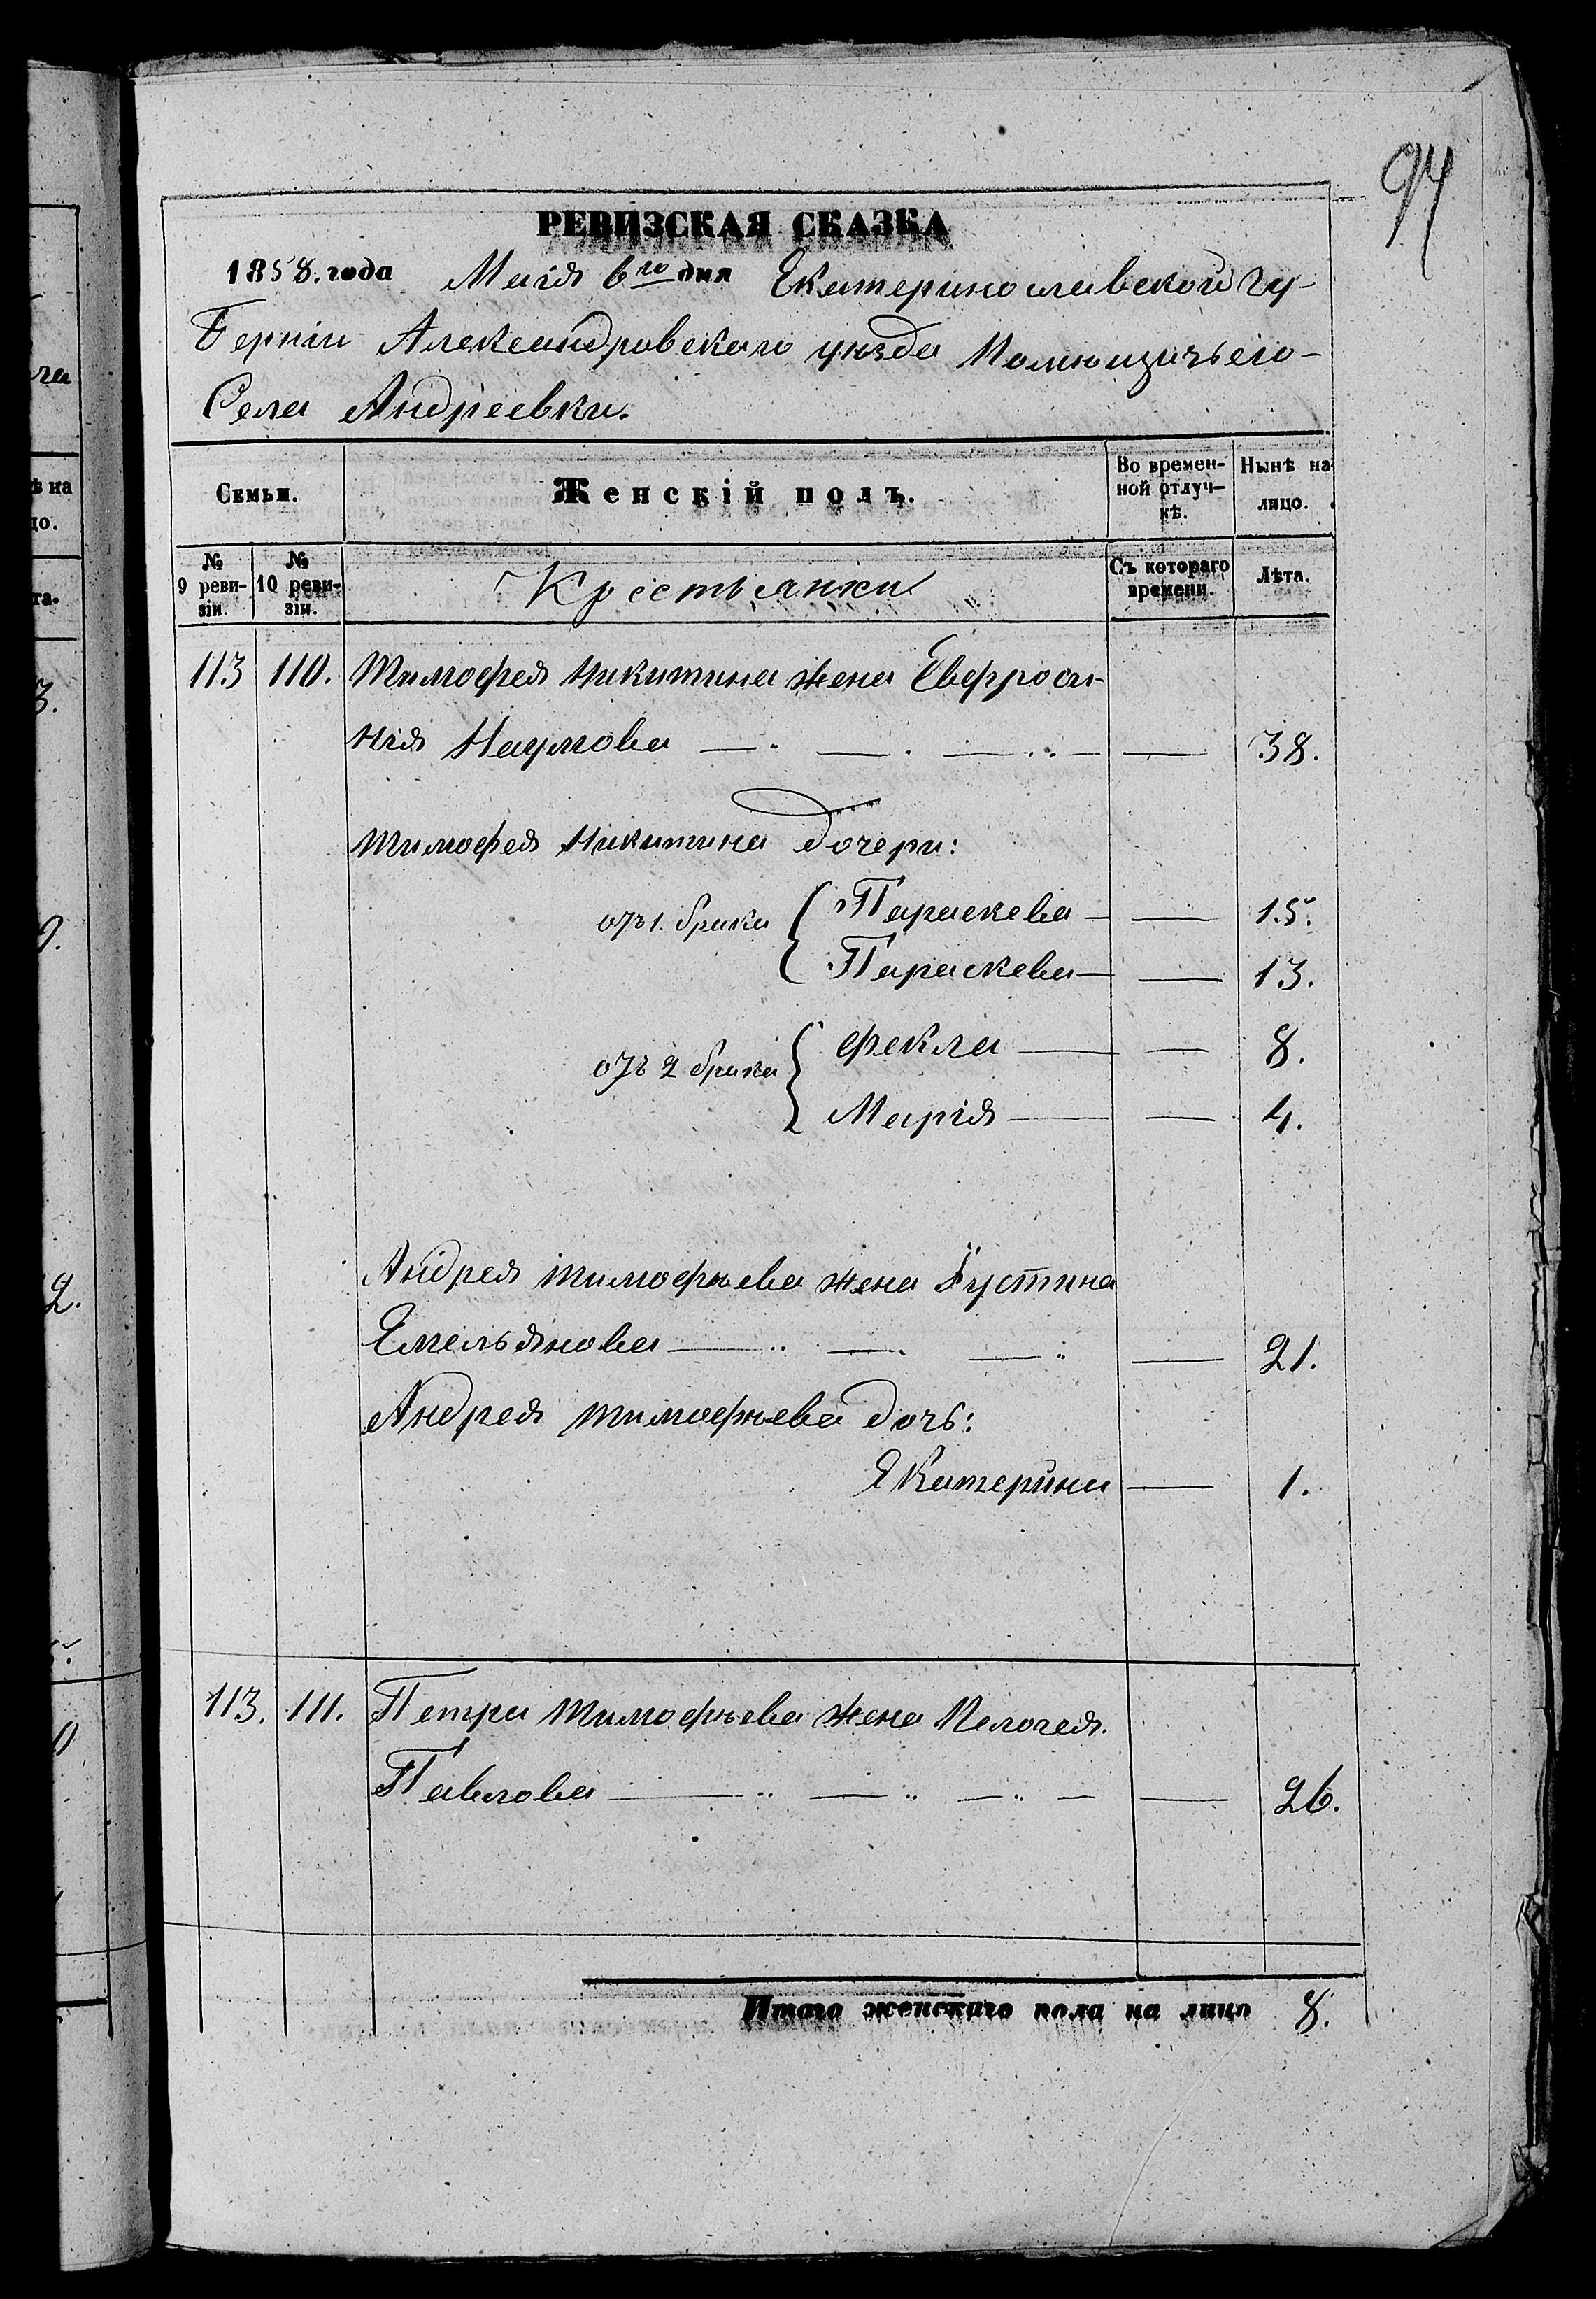 94
РЕВИЗСКАЯ СКАЗКА
1858. года Маія 6го дня Екатеринославской Гу-
берніи Александровскаго уѣзда Помѣщичьяго
Села Андреевки.
Семьи. Женскій полъ. Во времен-ной отлуч-кѣ. Нынѣ на лицо.
№ 9 реви-зіи. № 10 реви-зіи. Крестьянки Съ котораго времени. Лѣта.
113 110. Тимофея Никитина жена Евфроси-
нія Наумова — 38.
Тимофея Никитина дочери:
отъ 1. брака { Параскева — — 15.
Параскева — — 13.
отъ 2 брака { Фекла — — 8.
Марія — — 4.
Андрея Тимофѣева жена Їустина
Емельянова — — 21.
Андрея Тимофѣева дочь:
Екатерина — 1.
113. 111. Петра Тимофѣева жена Пелагея
Павлова — — 26.
Итого женскаго пола на лицо 8.